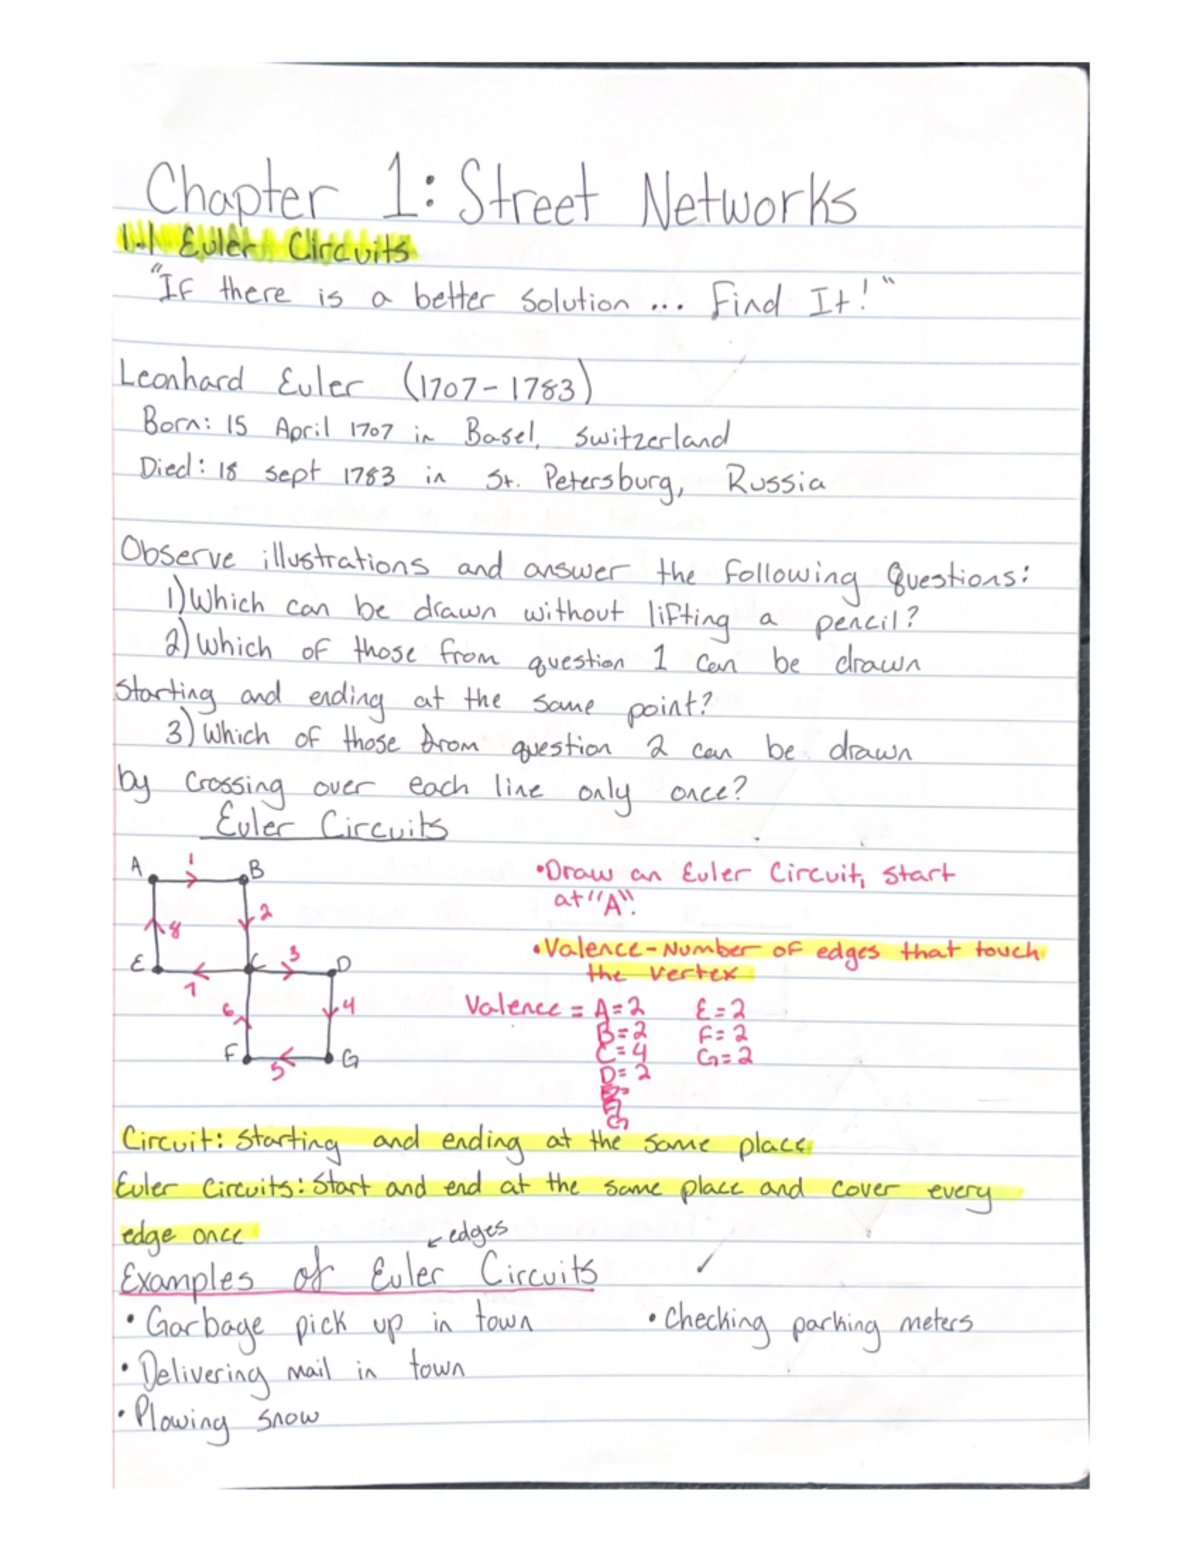 Chapter 1: Street Networks
1.1 Euler Circuits
"If there is a better solution ... Find It!"
Leonhard Euler (1707-1783)
Born: 15 April 1707 in Basel, Switzerland
Died: 18 Sept 1783 in St. Petersburg, Russia
Observe illustrations and answer the following Questions:
1) Which can be drawn without lifting a pencil?
2) Which of those from question 1 can be drawn
starting and ending at the same point?
3) Which of those from question 2 can be drawn
by crossing over each line only once?
Euler Circuits
A 1 B
2
8
E 7 C 3 D
6 4
F 5 G
•Draw an Euler Circuit, start
at "A".
•Valence-Number of edges that touch
the vertex
Valence = A=2 E=2
B=2 F=2
C=4 G=2
D=2
E=
F
G
Circuit: Starting and ending at the same place
Euler Circuits: Start and end at the same place and cover every
edge once
edges
Examples of Euler Circuits
• Garbage pick up in town • Checking parking meters
• Delivering mail in town
• Plowing snow